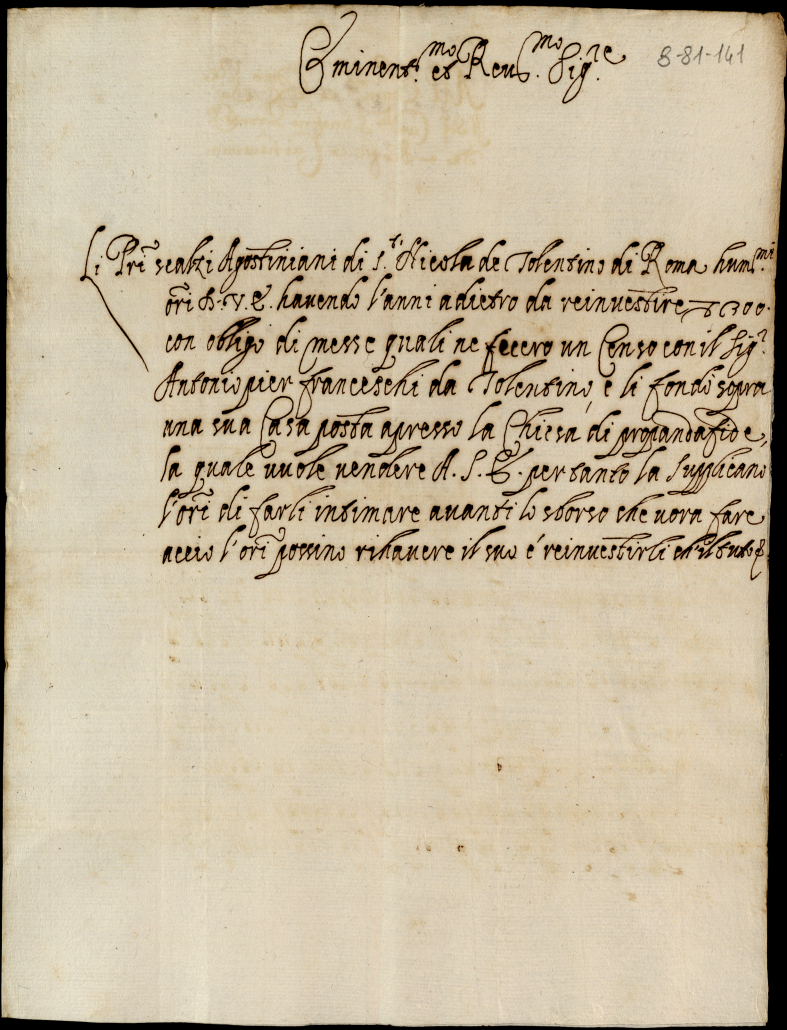 Eminent.mo et Reu.mo Sig.re
8-81-141
Li Pri scalzi Agostiniani di S.t Nicola de Tolentino di Roma hum.mi
ori di V. E. hauendo l'anni adietro da reinuestire 300.
con obligo di messe quali ne fecero un Censo con il Sig.r
Antonio pier franceschi da Tolentino, e li fondò sopra
una sua Casa posta apresso la Chiesa di propandafide,
la quale vuole vendere A. S. E. per tanto la supplicano
l'ori di farli intimare auanti lo sborso che uorà fare
acciò l'ori possino rihauere il suo é reinuestirli ch'il tutto